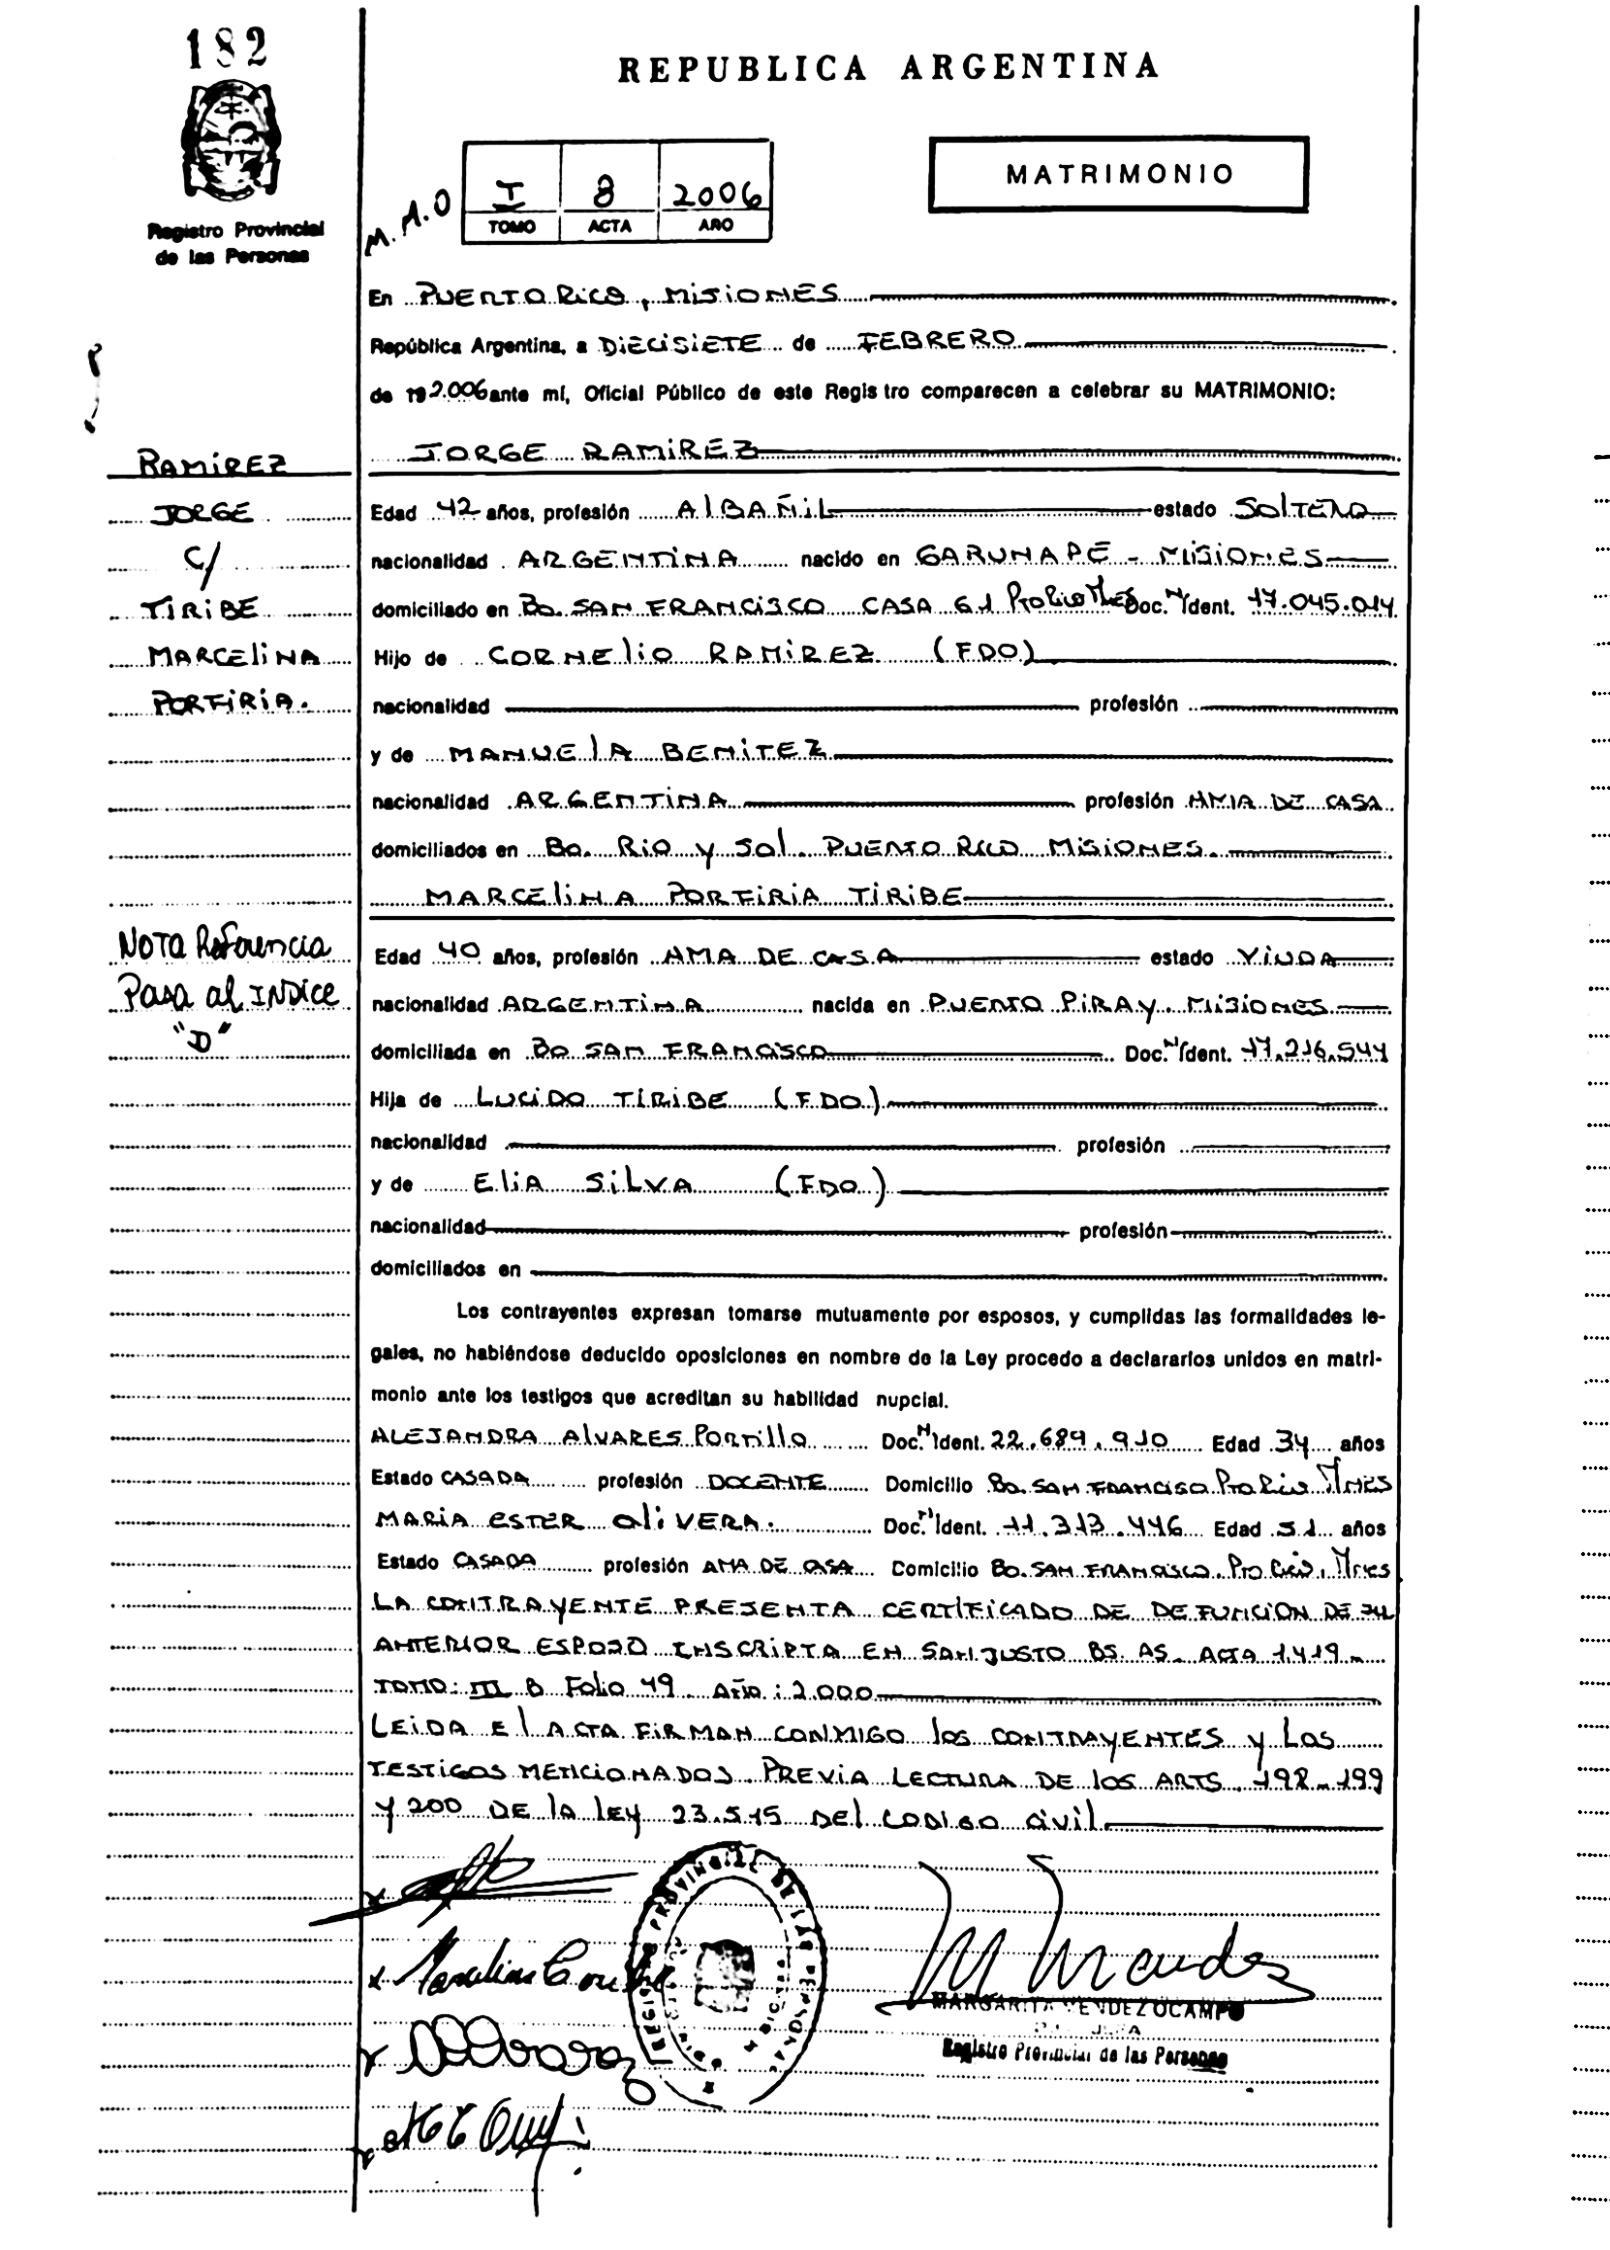 182
REPUBLICA ARGENTINA
MATRIMONIO
M.A.O
I 8 2006
TOMO ACTA AÑO
Registro Provincial
de las Personas
En PUERTO RICO, MISIONES
República Argentina, a DIECISIETE de FEBRERO
de 19 2.006 ante mí, Oficial Público de este Registro comparecen a celebrar su MATRIMONIO:
JORGE RAMIREZ
RAMIREZ
JORGE
C/
TIRIBE
MARCELINA
PORFIRIA.
Edad 42 años, profesión ALBAÑIL estado SOLTERO
nacionalidad ARGENTINA nacido en GARUHAPE - MISIONES
domiciliado en Bo. SAN FRANCISCO CASA 61 Pto Rico Mnes Doc. N Ident. 17.045.014
Hijo de CORNELIO RAMIREZ (FDO)
nacionalidad profesión
y de MANUELA BENITEZ
nacionalidad ARGENTINA profesión AMA DE CASA
domiciliados en Bo. RIO Y SOL. PUERTO RICO MISIONES.
MARCELINA PORFIRIA TIRIBE
NOTA Referencia
Pasa al INDICE
"D"
Edad 40 años, profesión AMA DE CASA estado VIUDA
nacionalidad ARGENTINA nacida en PUERTO PIRAY. MISIONES
domiciliada en Bo SAN FRANCISCO Doc. N Ident. 17.216.544
Hija de LUCIDO TIRIBE (FDO)
nacionalidad profesión
y de ELIA SILVA (FDO)
nacionalidad profesión
domiciliados en
Los contrayentes expresan tomarse mutuamente por esposos, y cumplidas las formalidades le-
gales, no habiéndose deducido oposiciones en nombre de la Ley procedo a declararlos unidos en matri-
monio ante los testigos que acreditan su habilidad nupcial.
ALEJANDRA ALVARES PORTILLO Doc. N Ident. 22.689.910 Edad 34 años
Estado CASADA profesión DOCENTE Domicilio Bo. SAN FRANCISCO Pto Rico Mnes
MARIA ESTER OLIVERA. Doc. N Ident. 11.313.446 Edad 51 años
Estado CASADA profesión AMA DE CASA Domicilio Bo. SAN FRANCISCO. Pto Rico, Mnes
LA CONTRAYENTE PRESENTA CERTIFICADO DE DEFUNCION DE SU
ANTERIOR ESPOSO INSCRIPTA EN SAN JUSTO BS. AS. ACTA 1.419-
TOMO: III B Folio 49. Año: 2.000
LEIDA EL ACTA FIRMAN CONMIGO los CONTRAYENTES Y LOS
TESTIGOS MENCIONADOS. PREVIA LECTURA DE los ARTS. 198-199
Y 200 DE la lEY 23.515 DEL CODIGO CIVIL.
REGISTRO PROVINCIAL DE LAS PERSONAS
MARGARITA MENDEZ OCAMPO
Registro Provincial de las Personas